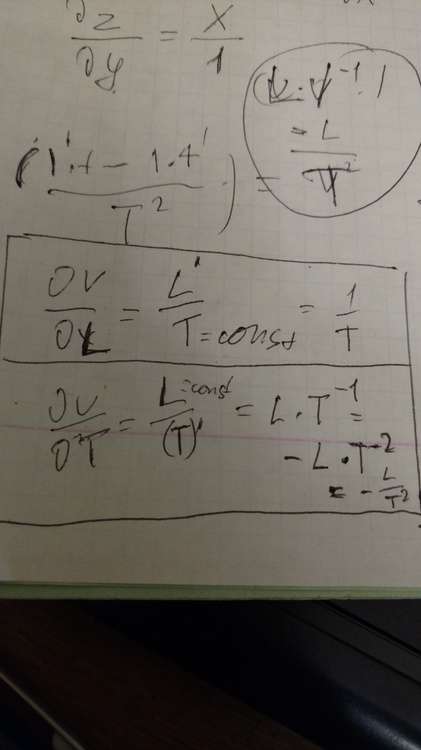 ∂z/∂y = x/1
(L·V⁻¹)
= L/T²
(1'·t - 1·t')/T² =
∂V/∂L = L'/T=const = 1/T
∂V/∂T = L=const/(T)' = L·T⁻¹ =
-L·T⁻²
= -L/T²